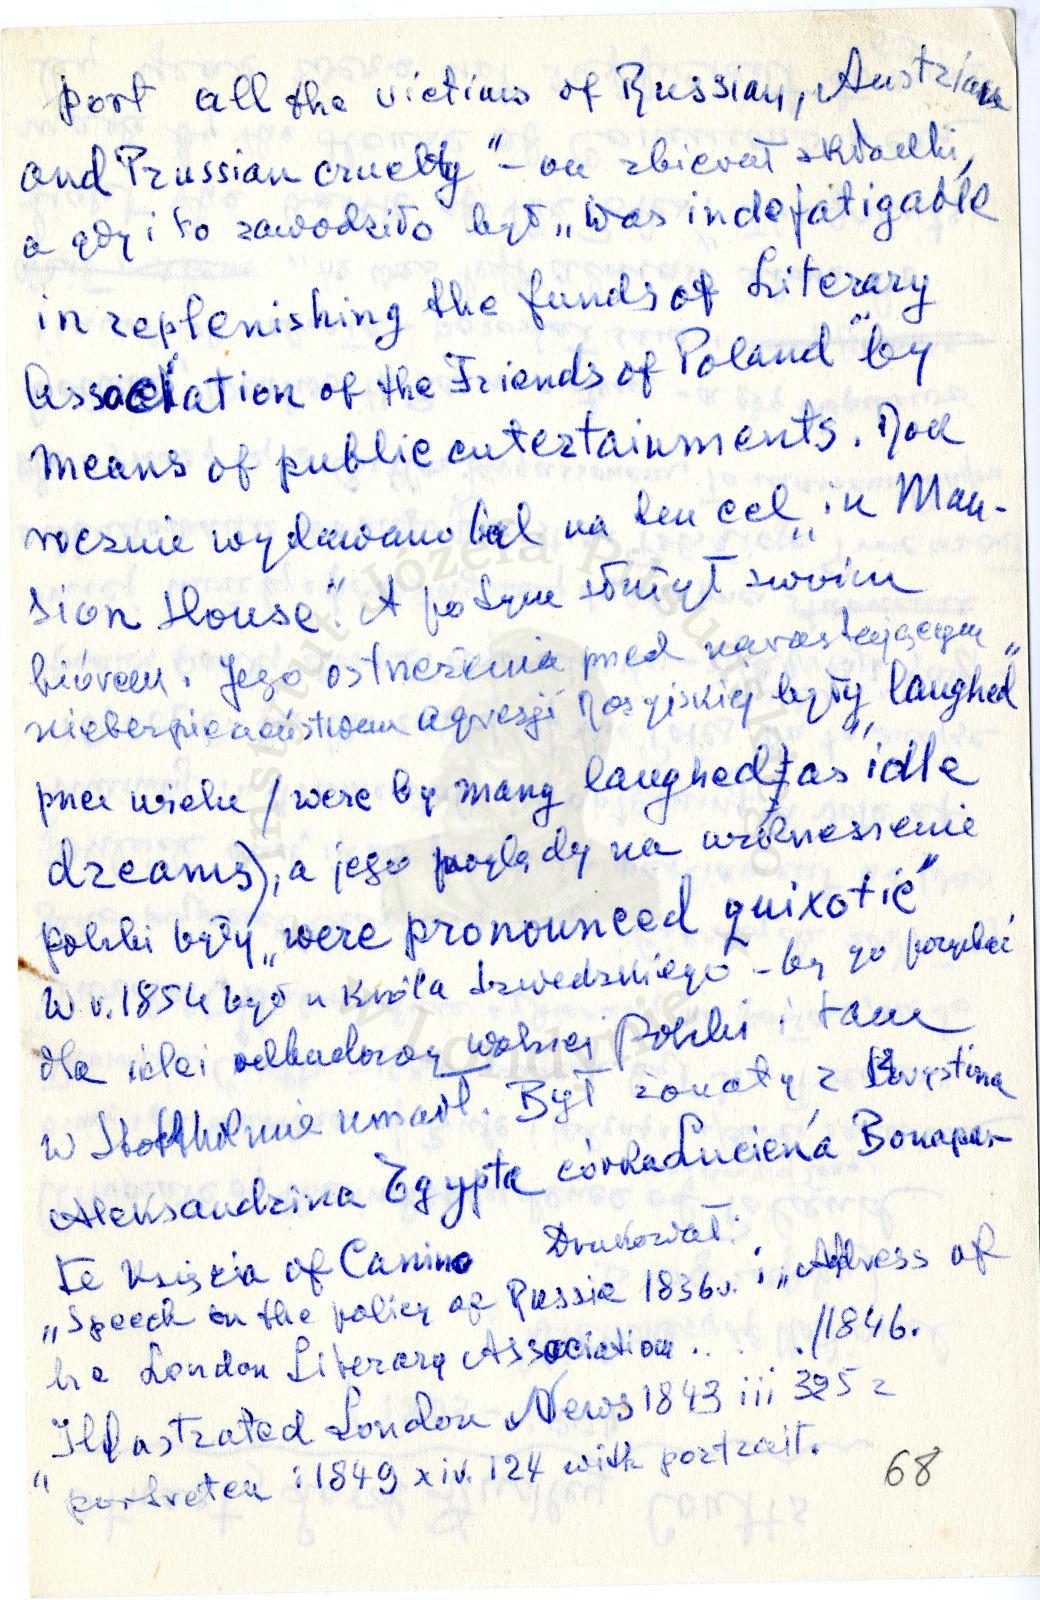 port all the victims of Russian, Austrian
and Prussian cruelty" – on zbierał składki,
a gdy i to zawodziło był „was indefatigable
in replenishing the funds of Literary
Association of the Friends of Poland" by
means of public entertainments. Rok
rocznie wydawano bal na ten cel „in Man-
sion House". A po tym służył swoim
biórem. Jego ostrzeżenia przed narastającym
niebezpieczeństwem agresji rosyjskiej były „laughed"
przez wielu (were by many laughed as "idle
dreams), a jego poglądy na wskrzeszenie
polski były „were pronounced quixotic"
W r. 1854 był u Króla szwedzkiego – by go pozyskać
dla idei odbudowy wolnej Polski i tam
w Stokholmie umarł. Był żonaty z
Aleksandrina Egypta córka Luciena Bonapar-
te Księcia of Canino Drukował:
„Speech on the policy of Russia 1836 r. i „Address of
he London Literary Association . . . /1846.
Illustrated London News 1843 iii 325 z
" portretem i 1849 xiv. 124 with portrait.
68
Instytut Józefa Piłsudskiego w Londynie